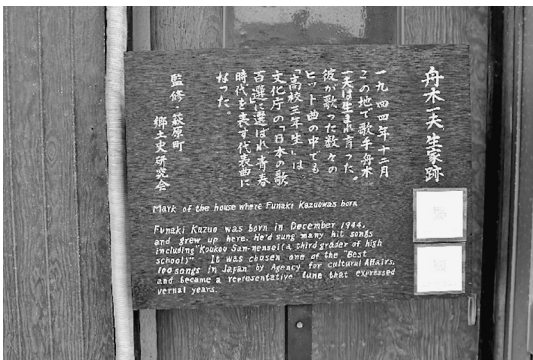 舟木一夫 生家跡
一九四四年十二月
この地で歌手舟木
一夫は生まれ育った。
彼が歌った数々の
ヒット曲の中でも
「高校三年生」は
文化庁の「日本の歌
百選」に選ばれ青春
時代を表す代表曲に
なった。
監修・萩原町
郷土史研究会
Mark of the house where Funaki Kazuowas born
Funaki Kazuo was born in December 1944,
and grew up here. He'd sung many hit songs
including "Koukou San-nensei (a third grader of high
school)" It was chosen one of the "Best
100 songs in Japan" by Agency for cultural Affairs.
and became a representative tune that expressed
vernal years.